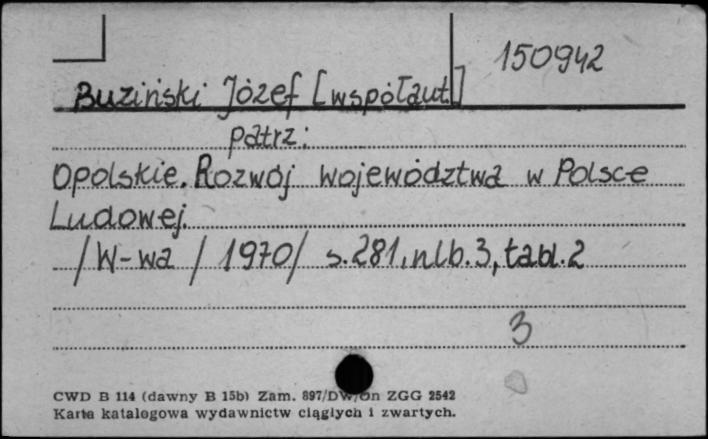 150942
Buziński Józef [współaut.]
patrz:
Opolskie. Rozwój województwa w Polsce
Ludowej.
/W-wa / 1970/ s.281, nlb.3, tabl.2
3
CWD B 114 (dawny B 15b) Zam. 897/DW/On ZGG 2542
Karta katalogowa wydawnictw ciągłych i zwartych.